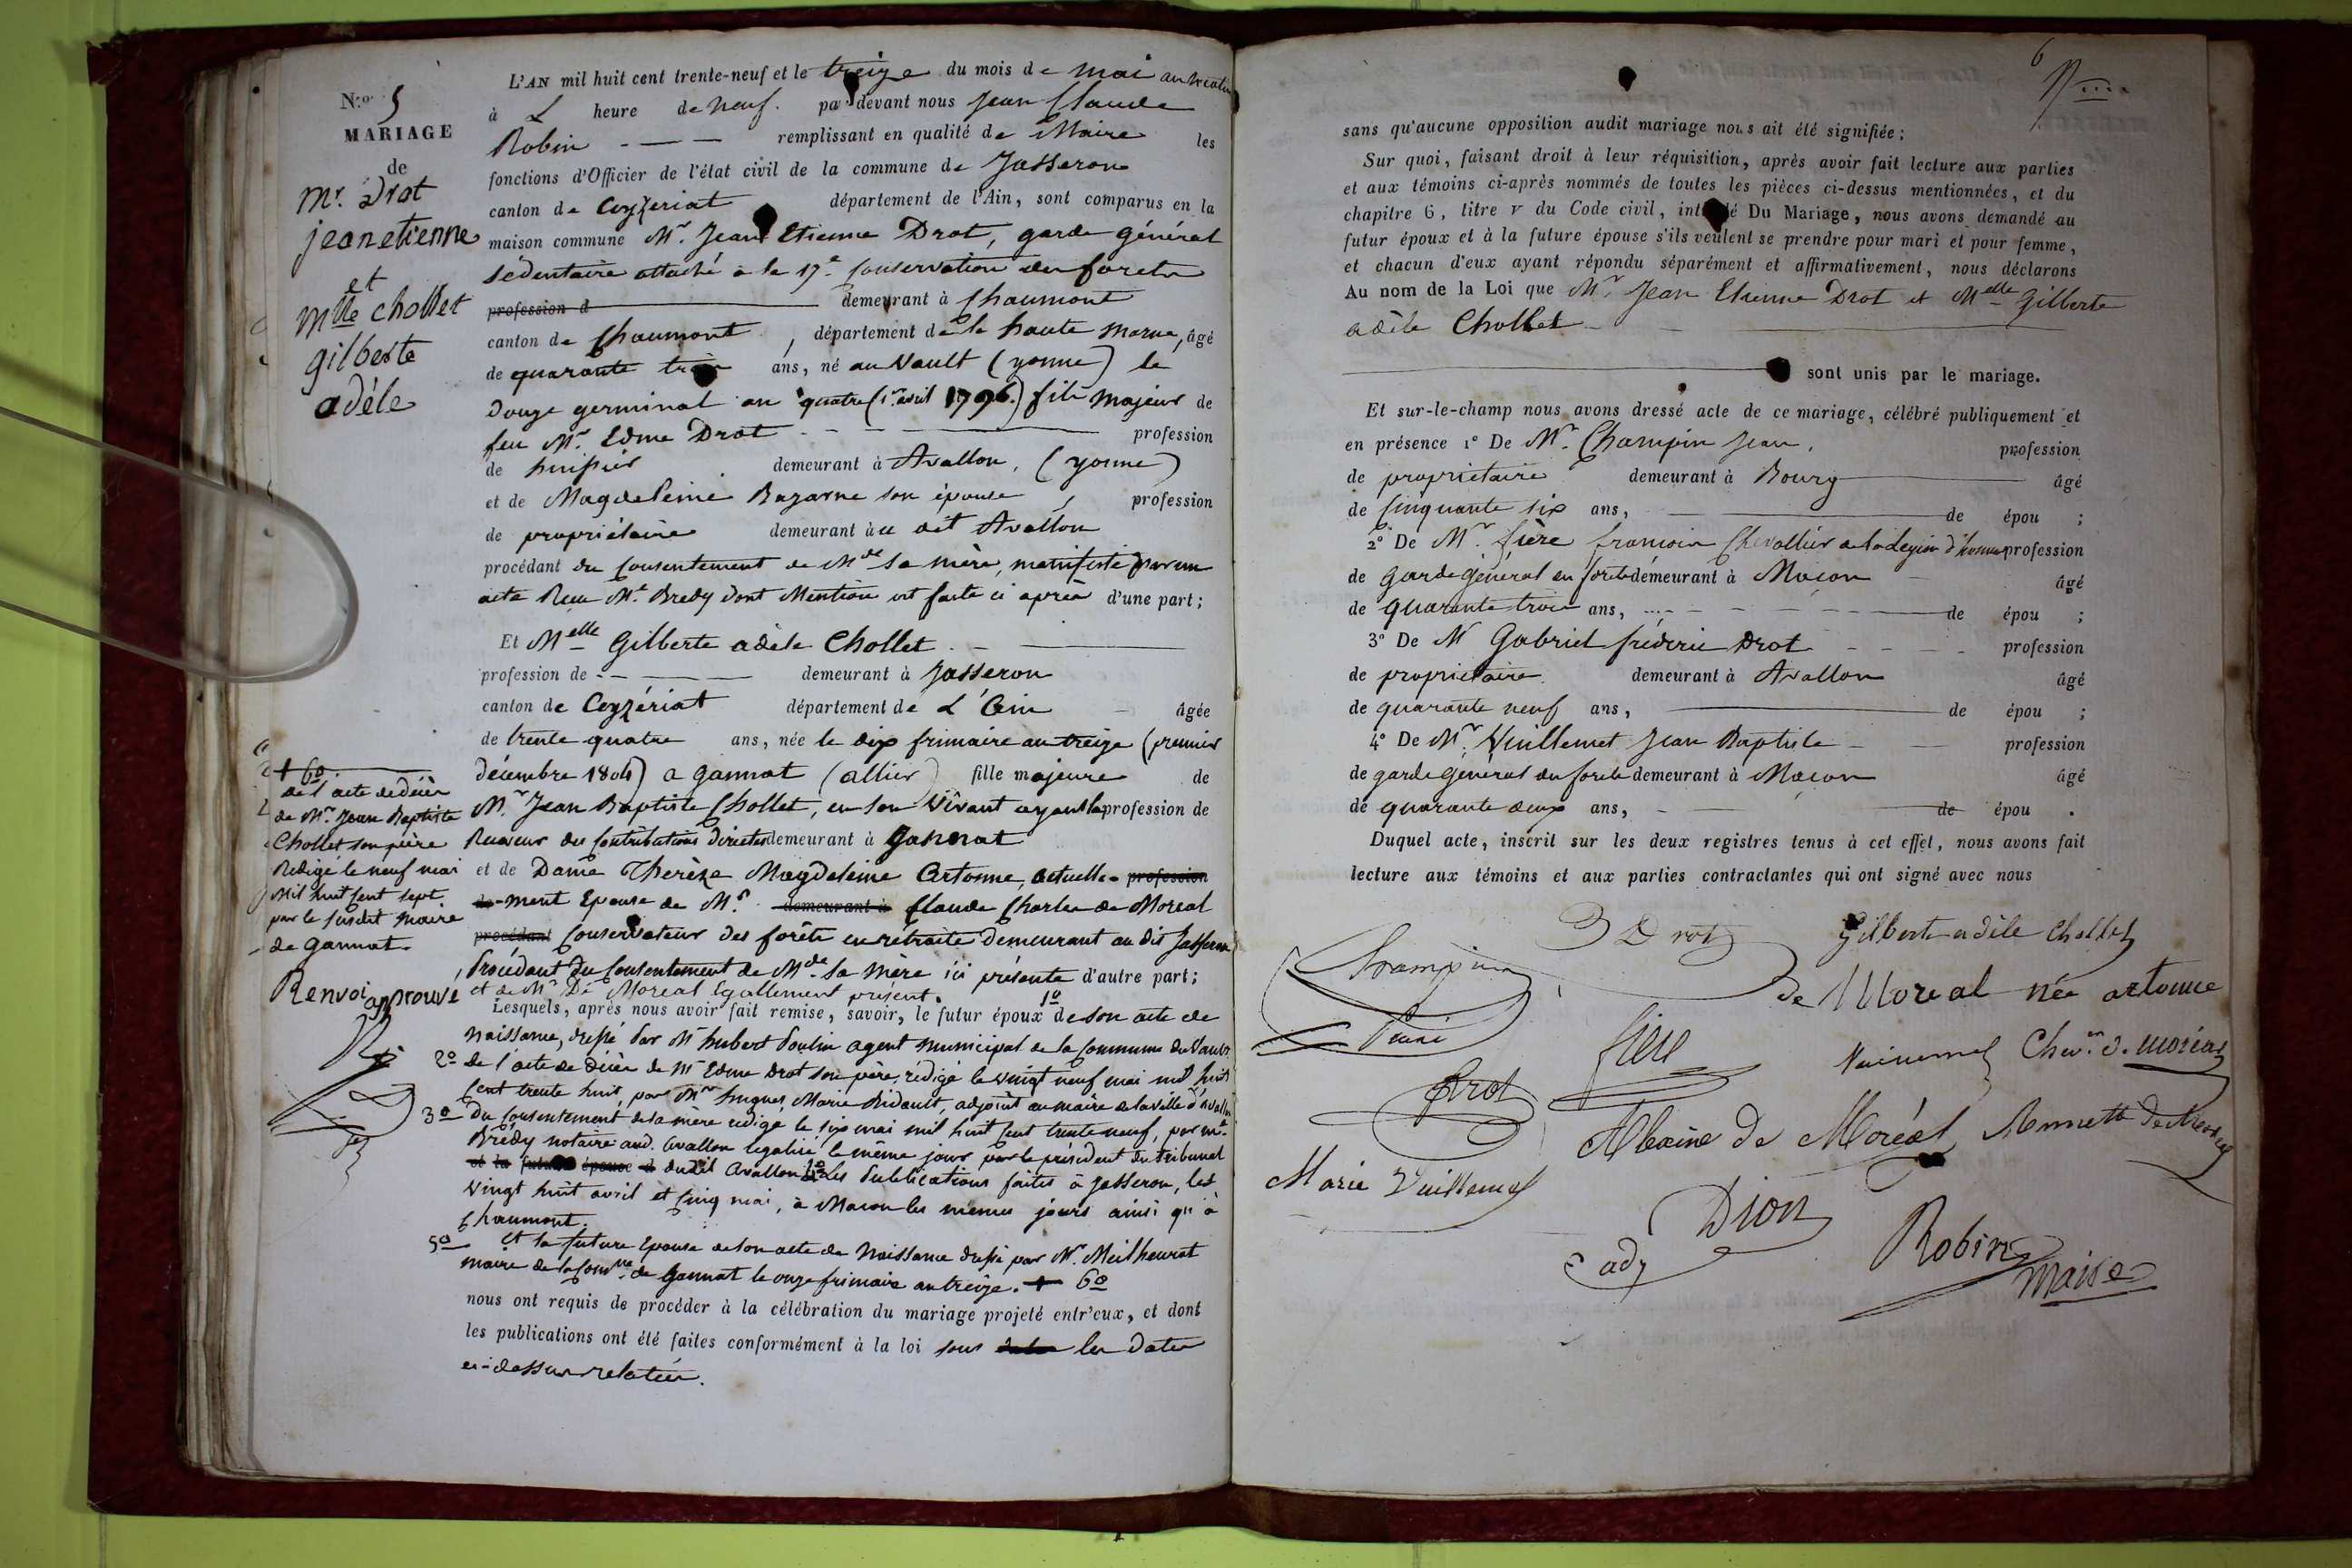 N.ro 5
MARIAGE
de
Mr. Drot
jean etienne
et
Mlle chollet
gilberte
adèle
L'AN mil huit cent trente-neuf et le treize du mois de mai au matin
à L heure de neuf. par devant nous Jean Claude
Robin remplissant en qualité de Maire les
fonctions d'Officier de l'état civil de la commune de Jasseron
canton de Ceyzeriat département de l'Ain, sont comparus en la
maison commune Mr. Jean Etienne Drot, garde général
sédentaire attaché à la 17e. Conservation des forets
profession d demeurant à Chaumont
canton de Chaumont, département de la haute Marne, âgé
de quarante trois ans, né au Vault (yonne) le
douze germinal an quatre (1er. avril 1796.) fils majeur de
feu Mr. Edme Drot profession
de huissier demeurant à Avallon, (yonne)
et de Magdeleine Bazarne son épouse, profession
de propriétaire demeurant àu dit Avallon
procédant du Consentement de Mde sa mère, manifesté par un
acte Reçu Me. Bredy dont Mention est faite ci après d'une part;
Et Melle Gilberte adèle Chollet
profession de demeurant à Jasseron
canton de Ceyzériat département de L'Ain âgée
de trente quatre ans, née le dix frimaire an treize (premier
décembre 1804) a gannat (allier) fille majeure de
Mr. Jean Baptiste Chollet, en son Vivant ayant la profession de
Receveur des Contributions directes demeurant à Gannat
et de Dame Therèze Magdeleine Artonne, actuelle- profession
de -ment Epouse de Mr. demeurant à Claude Charles de Moreal
procédant Conservateur des forêts en retraite demeurant au dit Jasseron
Procédant du Consentement de Mde. sa Mère ici présente d'autre part;
et de Mr De Moreal Egallement présent.
Lesquels, après nous avoir fait remise, savoir, le futur époux 1o de son acte de
Naissance, dressé par Mr hubert Poulin agent municipal de la Commune du Vault
2o de l'acte de décès de Mr Edme Drot son père, rédigé le vingt neuf mai mil huit
Cent trente huit, par Mr hugues Marie Bidault, adjoint au maire de la ville d'Avallon
3o Du Consentement de la mère rédigé le six mai mil huit Cent trente neuf, par Me.
Brédy notaire aud. Avallon legalisé le même jour par le président du tribunal
et la future épouse d dudit Avallon 4o Les Publications faites à Jasseron, les
Vingt huit avril et Cinq mai, à Macon les memes jours ainsi qu'à
Chaumont.
5o Et la future Epouse de son acte de Naissance dressé par Mr. Meilheurat
maire de la Comne. de Gannat le onze frimaire an treize. + 6o
nous ont requis de procéder à la célébration du mariage projeté entr'eux, et dont
les publications ont été faites conformément à la loi sous les dates
ci-dessus relatées.
+ 6o
de l'acte de décès
de Mr. Jean Baptiste
Chollet son père
Redigé le neuf mai
Mil huit Cent sept
par le susdit Maire
de gannat.
Renvoi approuvé
6
sans qu'aucune opposition audit mariage nous ait été signifiée;
Sur quoi, faisant droit à leur réquisition, après avoir fait lecture aux parties
et aux témoins ci-après nommés de toutes les pièces ci-dessus mentionnées, et du
chapitre 6, titre v du Code civil, intitulé Du Mariage, nous avons demandé au
futur époux et à la future épouse s'ils veulent se prendre pour mari et pour femme,
et chacun d'eux ayant répondu séparément et affirmativement, nous déclarons
Au nom de la Loi que Mr. Jean Etienne Drot et Melle Gilberte
adèle Chollet
sont unis par le mariage.
Et sur-le-champ nous avons dressé acte de ce mariage, célébré publiquement et
en présence 1o De Mr. Champin Jean, profession
de propriétaire demeurant à Bourg âgé
de Cinquante six ans, de épou ;
2o De Mr. fière francois Chevallier de la Legion d'honneur profession
de garde général en forets demeurant à Macon âgé
de quarante trois ans, de épou ;
3o De Mr Gabriel fréderic Drot profession
de propriétaire demeurant à Avallon âgé
de quarante neuf ans, de épou ;
4o De Mr. Vuillemet Jean Baptiste profession
de garde général des forets demeurant à Macon âgé
de quarante deux ans, de épou .
Duquel acte, inscrit sur les deux registres tenus à cet effet, nous avons fait
lecture aux témoins et aux parties contractantes qui ont signé avec nous
Drot Gilberte adèle Chollet
Champin
de Moreal née artonne
fiere
Vuillemet Chev.er d. moréal
Drot
Alexine de Moréal Annette de Moréal
Marie Vuillemet
Dion
Cady
Robin
maire